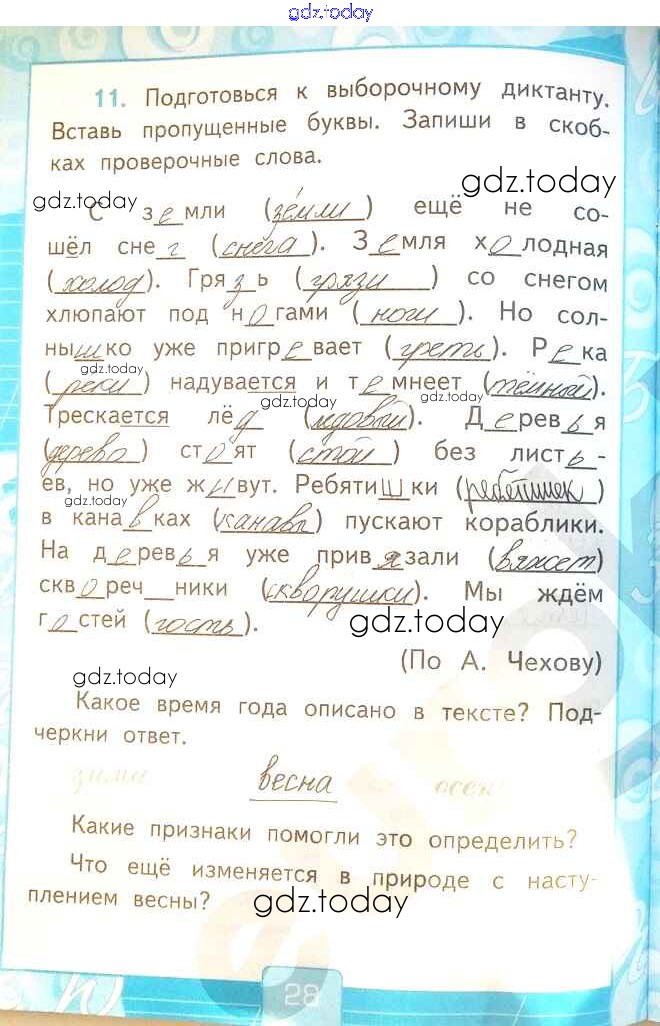 gdz.today
11. Подготовься к выборочному диктанту.
Вставь пропущенные буквы. Запиши в скоб-
ках проверочные слова.
gdz.today
gdz.today
С земли (зе́мли) ещё не со-
шёл снег (снега). Земля холодная
(холод). Грязь (грязи) со снегом
хлюпают под ногами (ноги). Но сол-
нышко уже пригревает (греть). Река
gdz.today
(реки) надувается и темнеет (тёмный).
gdz.today
gdz.today
Трескается лёд (ледовый). Деревья
(дерево) стоят (стой) без листь-
ев, но уже живут. Ребятишки (ребетишек)
gdz.today
в канавках (канавы) пускают кораблики.
На деревья уже привязали (вяжет)
сквореч__ники (скворушки). Мы ждём
гостей (гость).
gdz.today
(По А. Чехову)
gdz.today
Какое время года описано в тексте? Под-
черкни ответ.
зима весна осень
Какие признаки помогли это определить?
Что ещё изменяется в природе с насту-
плением весны?
gdz.today
28